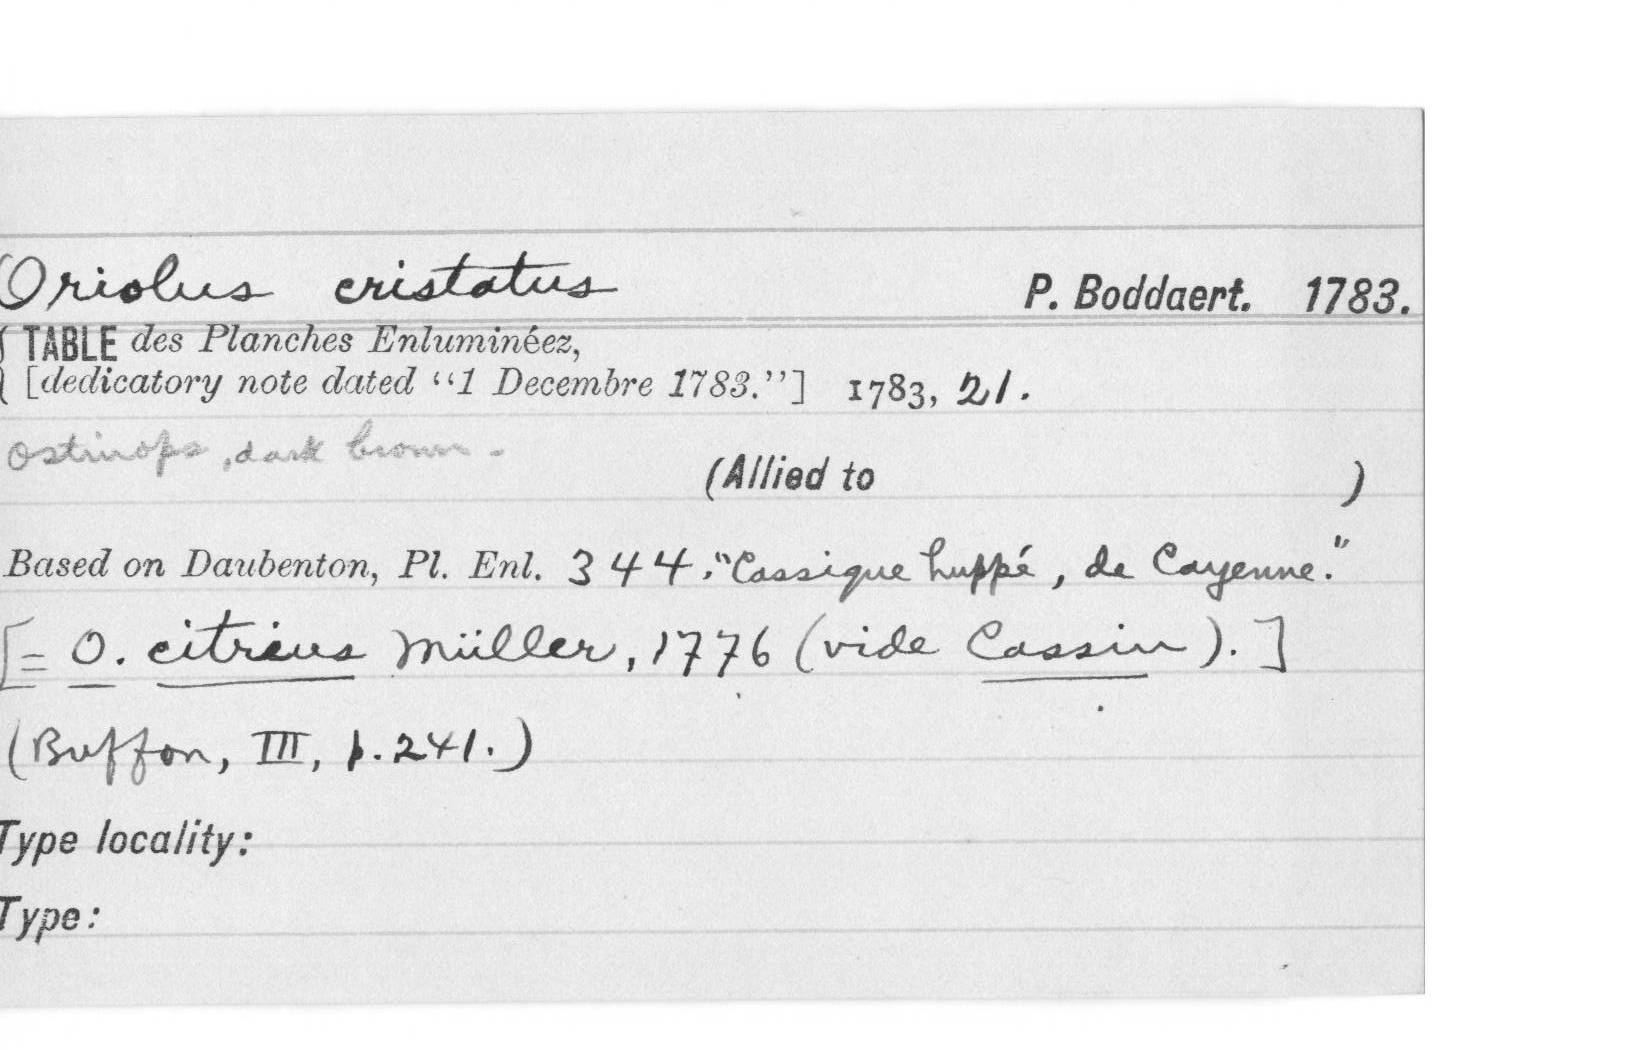 Oriolus cristatus P. Boddaert. 1783.
{ TABLE des Planches Enluminéez,
[dedicatory note dated "1 Decembre 1783."] 1783, 21.
Ostinops, dark brown -
(Allied to )
Based on Daubenton, Pl. Enl. 344. "Cassique huppé, de Cayenne."
[= O. citrius Müller, 1776 (vide Cassin). ]
(Buffon, III, p. 241.)
Type locality:
Type: